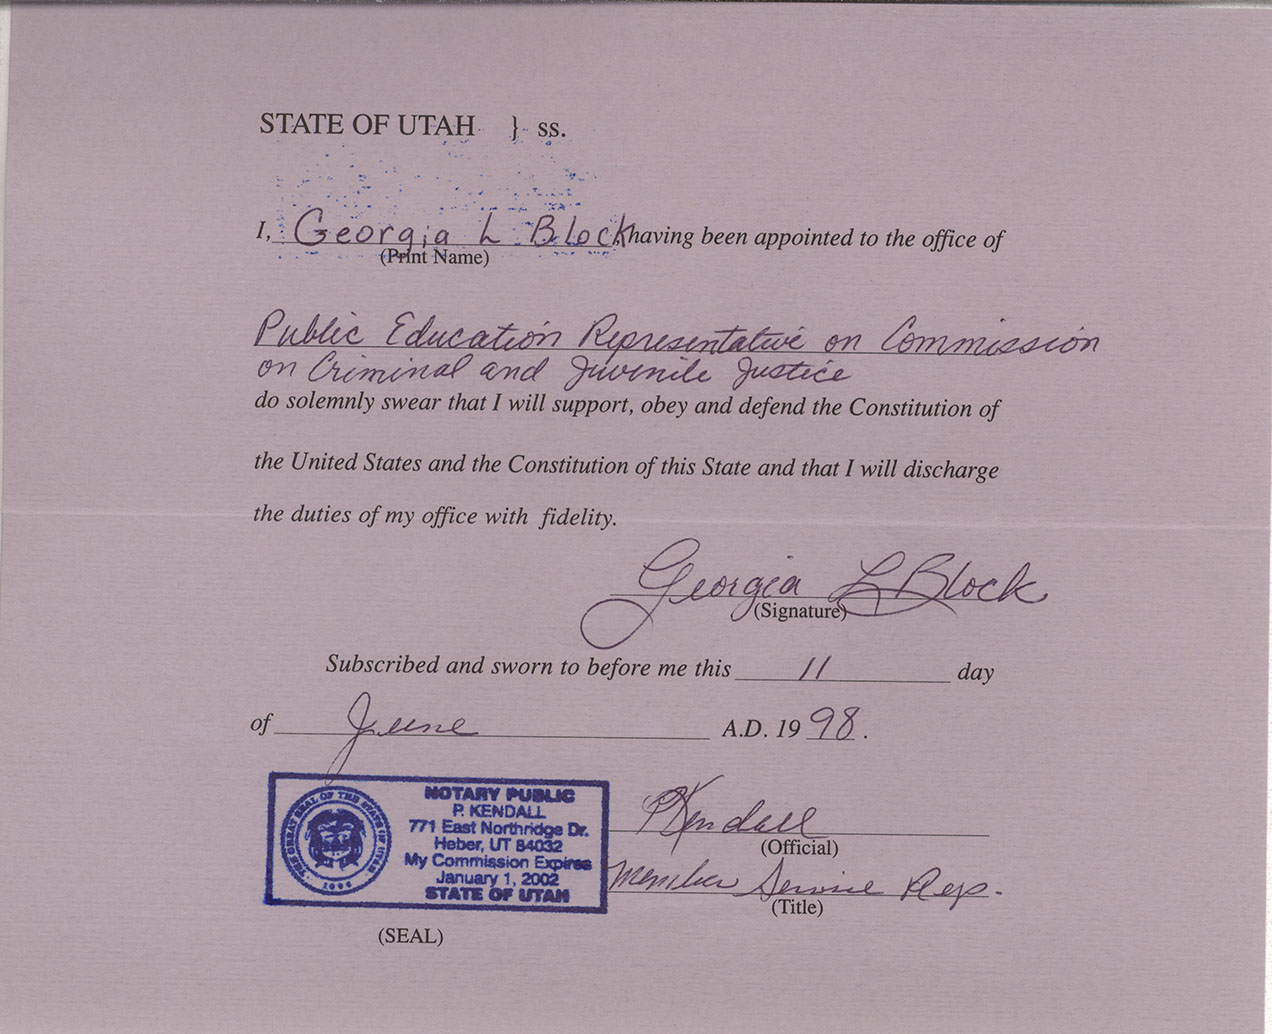 STATE OF UTAH } ss.
I, Georgia L Block, having been appointed to the office of
(Print Name)
Public Education Representative on Commission
on Criminal and Juvenile Justice
do solemnly swear that I will support, obey and defend the Constitution of
the United States and the Constitution of this State and that I will discharge
the duties of my office with fidelity.
Georgia L Block
(Signature)
Subscribed and sworn to before me this 11 day
of June A.D. 19 98.
THE GREAT SEAL OF THE STATE OF UTAH
1896
NOTARY PUBLIC
P. KENDALL
771 East Northridge Dr.
Heber, UT 84032
My Commission Expires
January 1, 2002
STATE OF UTAH
(SEAL)
P Kendall
(Official)
Member Service Rep.
(Title)